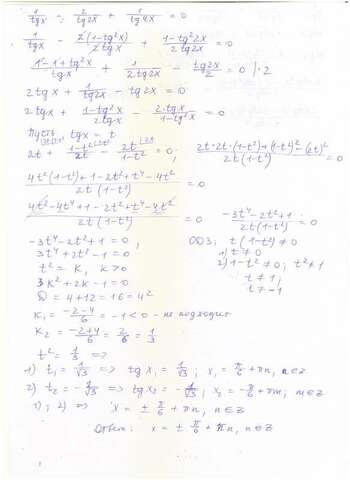 1/tgx − 2/tg2x + 1/tg4x = 0
1/tgx − 2(1-tg²x)/2tgx + 1-tg²2x/2tg2x = 0
1-1+tg²x/tgx + 1/2tg2x − tg2x/2 = 0 |·2
2tgx + 1/tg2x − tg2x = 0
2tgx + 1-tg²x/2tgx − 2·tgx/1-tg²x = 0
Пусть tgx = t
2t + 1-t²/2t − 2t/1-t² = 0; 2t·2t·(1-t²)+(1-t²)²-(2t)²/2t(1-t²) = 0
4t²(1-t²)+1-2t²+t⁴-4t²/2t(1-t²) = 0
4t²-4t⁴+1-2t²+t⁴-4t²/2t(1-t²) = 0 -3t⁴-2t²+1/2t(1-t²) = 0
-3t⁴-2t²+1 = 0, ОДЗ: t(1-t²) ≠ 0
3t⁴+2t²-1 = 0 1) t ≠ 0
t² = K, K > 0 2) 1-t² ≠ 0; t² ≠ 1
3K²+2K-1 = 0 t ≠ 1,
D = 4+12 = 16 = 4² t ≠ -1
K₁ = -2-4/6 = -1 < 0 - не подходит
K₂ = -2+4/6 = 2/6 = 1/3
t² = 1/3 =>
1) t₁ = 1/√3 => tgx₁ = 1/√3; x₁ = π/6 + πn, n∈Z
2) t₂ = -1/√3 => tgx₂ = -1/√3; x₂ = -π/6 + πm; m∈Z
1); 2) => x = ± π/6 + πn, n∈Z
Ответ: x = ± π/6 + πn, n∈Z